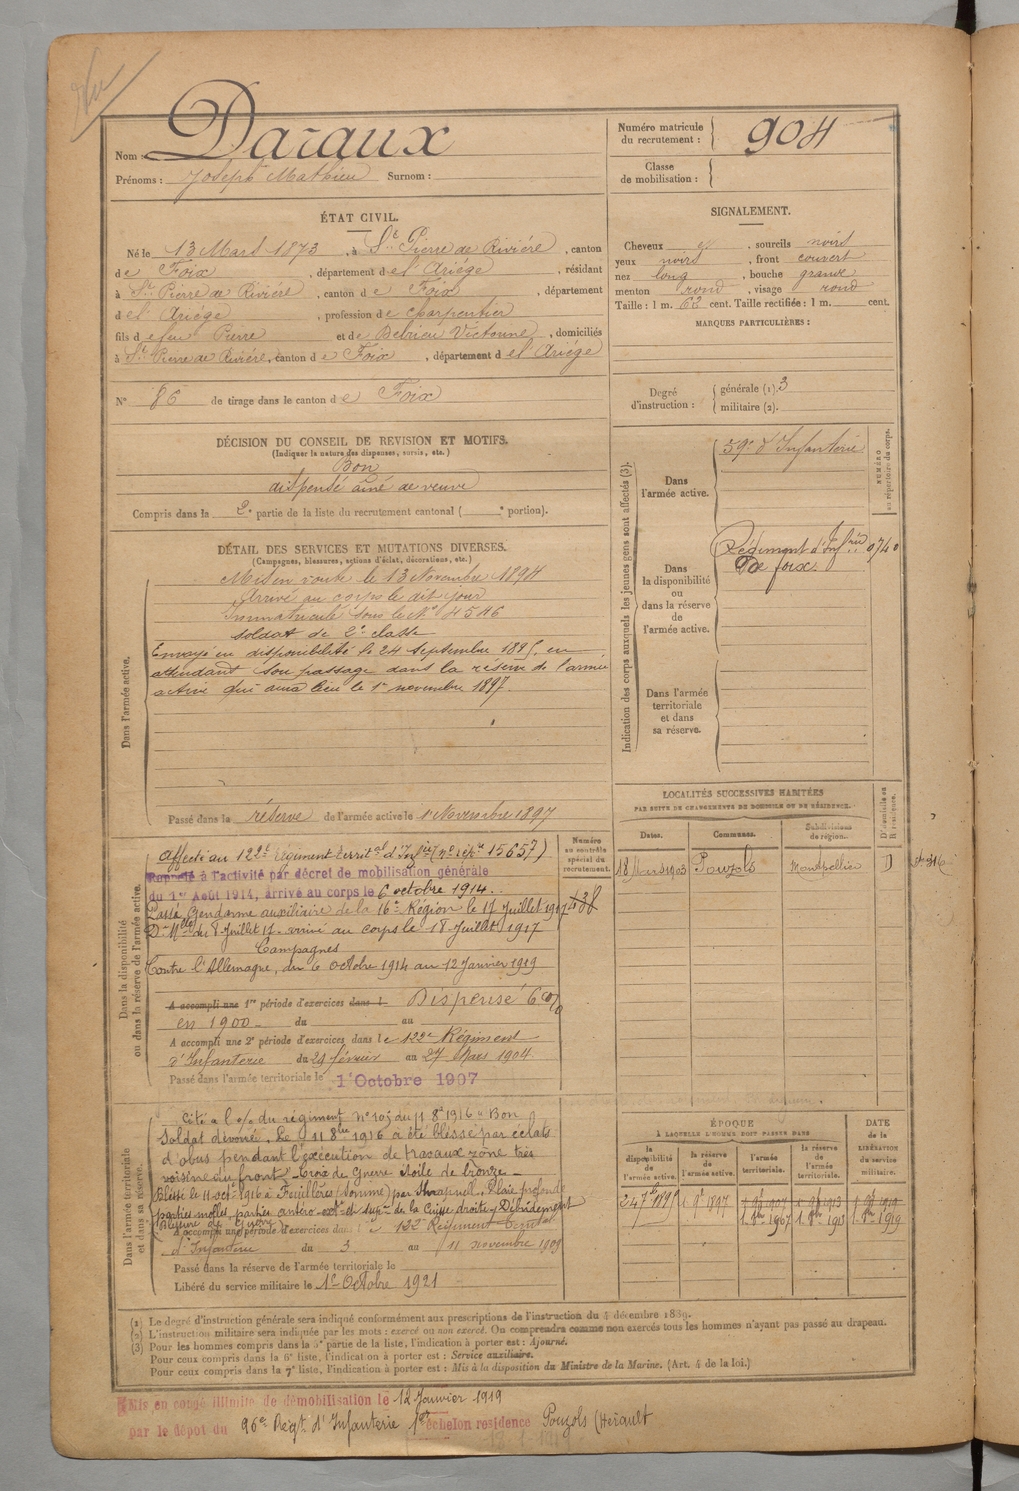 Vu
Nom : Daraux
Prénoms : Joseph Mathieu Surnom :
Numéro matricule du recrutement : 904
Classe de mobilisation :
ÉTAT CIVIL.
Né le 13 Mars 1873, à St Pierre de Rivière, canton
de Foix, département de l'Ariége, résidant
à St Pierre de Rivière, canton de Foix, département
de l'Ariége, profession de charpentier
fils de feu Pierre et de Victorine, domiciliés
à St Pierre de Rivière, canton de Foix, département de l'Ariége
N° 86 de tirage dans le canton de Foix
SIGNALEMENT.
Cheveux, sourcils noirs
yeux noirs, front couvert
nez long, bouche grande
menton rond, visage rond
Taille : 1 m. 62 cent. Taille rectifiée : 1 m. cent.
MARQUES PARTICULIÈRES :
Degré d'instruction : générale (1). 3
militaire (2).
DÉCISION DU CONSEIL DE REVISION ET MOTIFS.
(Indiquer la nature des dispenses, sursis, etc.)
Bon
dispensé ainé de veuve
Compris dans la 2e partie de la liste du recrutement cantonal ( e portion).
DÉTAIL DES SERVICES ET MUTATIONS DIVERSES.
(Campagnes, blessures, actions d'éclat, décorations, etc.)
Dans l'armée active.
Mis en route le 13 Novembre 1894
Arrivé au corps le dit jour
Immatriculé sous le N° 4546
soldat de 2e classe
Envoyé en disponibilité le 24 septembre 1895, en
attendant son passage dans la réserve de l'armée
active qui aura lieu le 1er novembre 1897.
Passé dans la réserve de l'armée active le 1er Novembre 1897
Indication des corps auxquels les jeunes gens sont affectés (3).
NUMÉRO au répertoire du corps.
Dans l'armée active.
59e d'Infanterie
Dans la disponibilité ou dans la réserve de l'armée active.
Régiment d'Infrie 9740
de foix.
Dans l'armée territoriale et dans sa réserve.
LOCALITÉS SUCCESSIVES HABITÉES
PAR SUITE DE CHANGEMENTS DE DOMICILE OU DE RÉSIDENCE.
Dates. Communes. Subdivisions de région. D domicile ou R résidence.
18 Mars 1903 Pouzols Montpellier D
Dans la disponibilité ou dans la réserve de l'armée active.
Numéro au contrôle spécial du recrutement.
Affecté au 122e Régiment territal d'Infrie (n° répre 15657)
Rappelé à l'activité par décret de mobilisation générale
du 1er Août 1914, arrivé au corps le 6 octobre 1914.
Passé Gendarme auxiliaire de la 16e Région le 17 Juillet 1917
Don Mlle du 8 Juillet 17. arrivé au corps le 18 Juillet 1917
Campagnes
Contre l'Allemagne, du 6 octobre 1914 au 12 Janvier 1919
A accompli une 1re période d'exercices dans l Dispensé 6 %
en 1900 du au
A accompli une 2e période d'exercices dans le 122e Régiment
d'Infanterie du 29 février au 27 Mars 1904
Passé dans l'armée territoriale le 1er Octobre 1907
Dans l'armée territoriale et dans sa réserve.
Cité à l'o/ du régiment n° 103 du 11 8e 1916 "Bon
Soldat dévoué. Le 11 8bre 1916 a été blessé par éclats
d'obus pendant l'exécution de travaux zone très
voisine du front. Croix de Guerre étoile de bronze.
Blessé le 11 oct. 1916 à Feuillères (Somme) par Shrapnell. Plaie profonde
parties molles, parties antéro-ext. et supre de la Cuisse droite
Blessure de Guerre
A accompli une période d'exercices dans le 132e Régiment territal
d'Infanterie du 3 au 11 novembre 1909
Passé dans la réserve de l'armée territoriale le
Libéré du service militaire le 1er Octobre 1921
ÉPOQUE
À LAQUELLE L'HOMME DOIT PASSER DANS
DATE de la LIBÉRATION du service militaire.
la disponibilité de l'armée active. la réserve de l'armée active. l'armée territoriale. la réserve de l'armée territoriale.
24 7bre 1895 1 9e 1897 1 9e 1907 1 9e 1913 1 9e 1919
1. 8bre 1907 1. 8bre 1913 1. 8bre 1919
(1) Le degré d'instruction générale sera indiqué conformément aux prescriptions de l'instruction du 4 décembre 1889.
(2) L'instruction militaire sera indiquée par les mots : exercé ou non exercé. On comprendra comme non exercés tous les hommes n'ayant pas passé au drapeau.
(3) Pour les hommes compris dans la 5e partie de la liste, l'indication à porter est : Ajourné.
Pour ceux compris dans la 6e liste, l'indication à porter est : Service auxiliaire.
Pour ceux compris dans la 7e liste, l'indication à porter est : Mis à la disposition du Ministre de la Marine. (Art. 4 de la loi.)
Mis en congé illimité de démobilisation le 12 Janvier 1919
par le dépôt du 96e Régt d'Infanterie 1er échelon residence Pouzols (Hérault